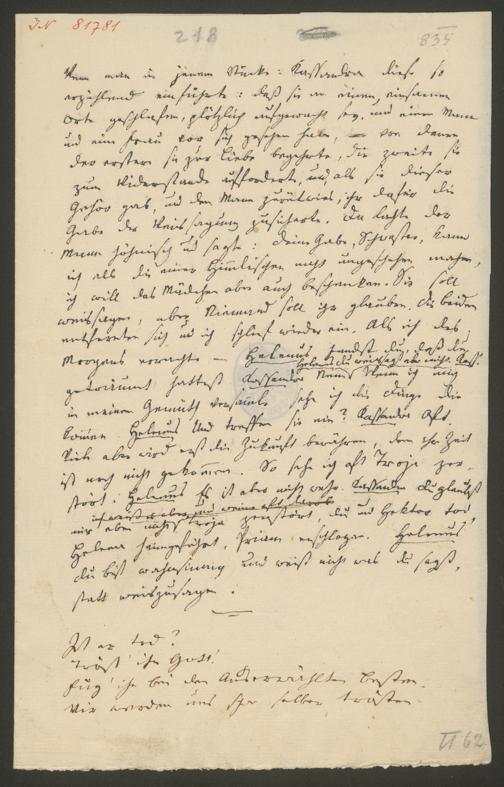 IN 81781
218
835
Wenn man in jenem Stücke: Kassandra diese so
erzählend einführte: daß sie an einem einsamen
Orte geschlafen, plötzlich aufgewacht sey, und einen Mann
und eine Frau vor sich gesehen habe, – von denen
der erstere sie zur Liebe begehrte, die zweite sie
zum Widerstande aufforderte, und, als sie dieser
Gehör gab, und den Mann zurückwies, ihr dafür die
Gabe der Weissagung zusicherte. Da lachte der
Mann höhnisch und sagte: deine Gabe, Schwester, kann
ich als die einer Himmlischen nicht ungeschehen machen,
ich will das Mädchen aber auch beschenken. Sie soll
weissagen, aber Niemand soll ihr glauben. Die beiden
entfernten sich und ich schlief wieder ein. Als ich des
Morgens erwachte – Helenus fandst du, daß du
geträumt hattest Kassandra Wenn ich mich
in meinem Gemüth versamle sehe ich die Dinge die
kommen Helenus Und treffen sie ein? Kassandra Oft.
Viele aber wird erst die Zukunft bewähren, denn ihre Zeit
ist noch nicht gekommen. So sehe ich oft Troja zer-
stört. Helenus Es ist aber nicht wahr. Kassandra Du glaubst
mir aber nicht Troja zerstört, du und Hektor tod
Helena heimgeführt, Priam erschlagen. Helenus
du bist wahnsinnig und weißt nicht was du sagst,
statt weiszusagen.
Ist er tod?
Tröst' ihn Gott!
Füg' ihn bei den Auserwählten besten.
Wir werden uns selber trösten.
II 62